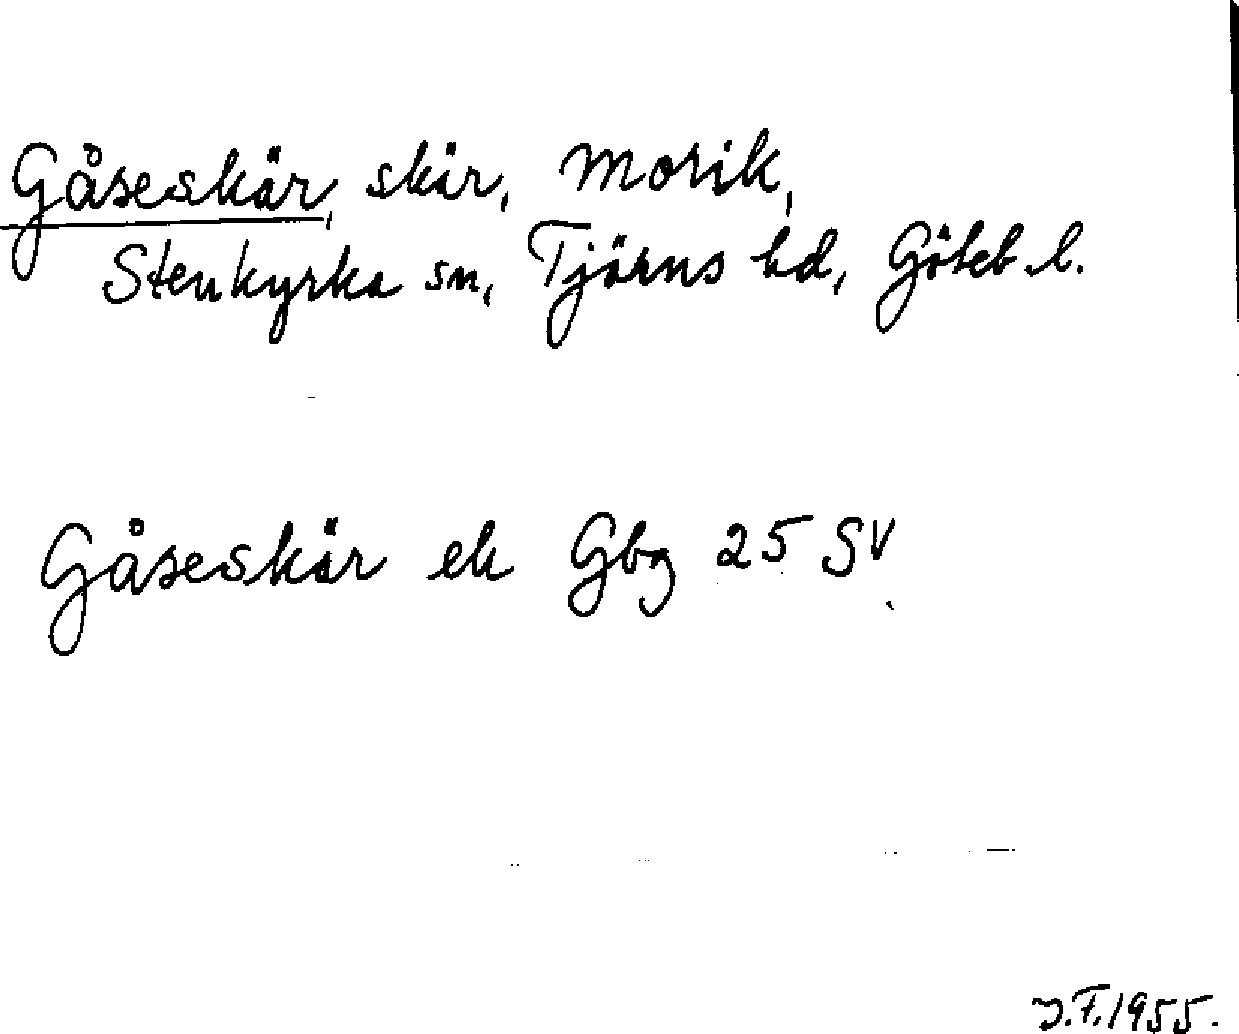 Gåseskär, skär, Morik,
Stenkyrka sn, Tjörns hd, Göteb. l.
Gåseskär ek Gbg 25 SV
1955.